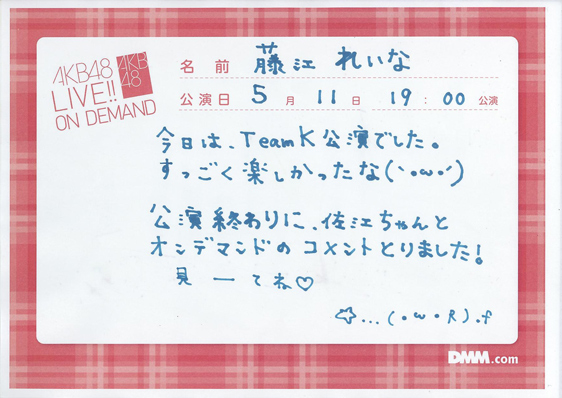 AKB48
LIVE!!
ON DEMAND
AKB
48
名前 藤江 れいな
公演日 5月11日 19:00公演
今日は、TeamK公演でした。
すっごく楽しかったな(`・ω・´)
公演終わりに、佐江ちゃんと
オンデマンドのコメントとりました!
見ーてね♡
☆...(・ω・R).f
DMM.com